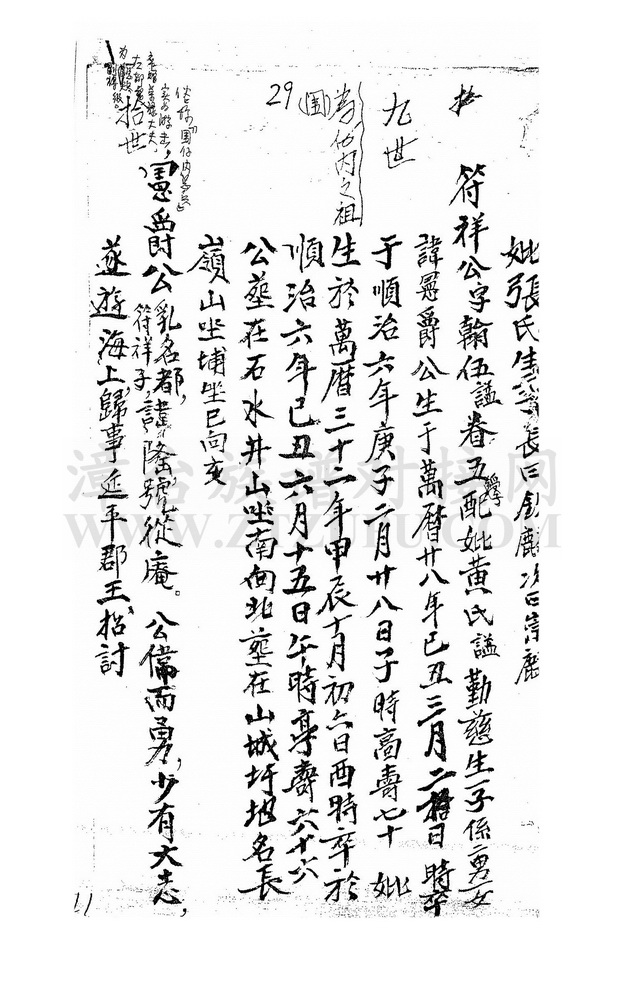 妣張氏生子長曰欽麟次曰崇麟
拾
符祥公字翰伍謚眷五配妣黄氏謚勤慈生一子係一男一女
學
九世
諱爵公生于萬曆廿八年己丑三月二拾日時卒
于順治六年庚子二月廿八日子時高壽七十 妣
為伯内之祖
生於萬曆三十二年甲辰十月初六日酉時卒於
29
(圍)
順治六年己丑六月十五日午時享壽六十六
公塟在石水井山坐南向北塟在山城圩地名長
嶺山坐埔坐巳向亥
拾世
憲爵公
乳名都,
符祥子,
諱隆號從庵。公偹而勇,少有大志,
遂遊海上,歸事延平郡王,招討
11
漳台族谱对接网
WWW.ZTZUPU.COM